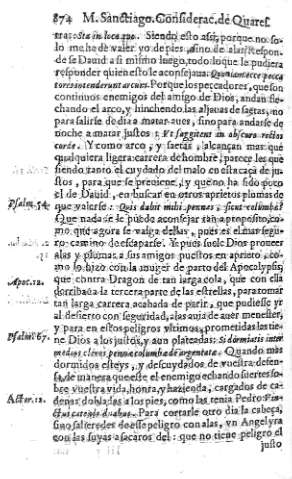 874 M. Sanctiago. Considerac. de Quares.
tras: Sta in loco tuo. Siendo esto assi, porque no so-
lo me ha de valer yo de pies, sino de alas? Respon-
de se Dauid a si mismo luego, todo lo que le pudiera
responder quien esto le aconsejaua: Quoniam ecce pecca
tores intenderunt arcum. Porque los peccadores, que son
continuos enemigos del amigo de Dios, andan fle-
chando el arco, y hinchendo las aljauas de saetas, no
para salirse de dia a matar aues, sino para andarse de
noche a matar justos: Vt sagittent in obscuro rectos
corde. Y como arco, y saetas, alcançan mas que
qualquiera ligera carrera de hombre, parece les que
siendo tanto el cuydado del malo en esta caça de ju-
stos, para que se preuiene, y que no ha sido poco
el de Dauid, en buscar en otros aprietos plumas de
Psalm. 54. que valerse: Quis dabit mihi pennas, sicut columbæ?
Que nada se le puede aconsejar tan a proposito, co-
mo que agora se valga dellas, pues es el mas segu-
ro camino de escaparse. Y pues suele Dios proueer
alas y plumas a sus amigos puestos en aprieto, co-
mo lo hizo con la muger de parto del Apocalypsi,
Apoc. 12. que contra Dragon de tan larga cola, que con ella
derribaua la tercera parte de las estrellas, para tomar
tan larga carrera acabada de parir, que pudiesse yr
al desierto con seguridad, alas auia de auer menester,
y para en estos peligros vltimos, prometidas las tie-
Psalm. 67. ne Dios a los justos, y aun plateadas: Si dormiatis inter
medios cleros pennæ columbæ deargentatæ. Quando mas
dormidos esteys, y descuydados de vuestra defen-
sa, de manera que este el enemigo echando suertes so-
bre vuestra vida, honra, y hazienda, cargados de ca-
Actor. 12. denas dobladas a los pies, como las tenia Pedro: Vin-
ctus catenis duabus. Para cortarle otro dia la cabeça,
sino salieredes de esse peligro con alas, vn Angel yra
con las suyas a sacaros del: que no tiene peligro el
justo